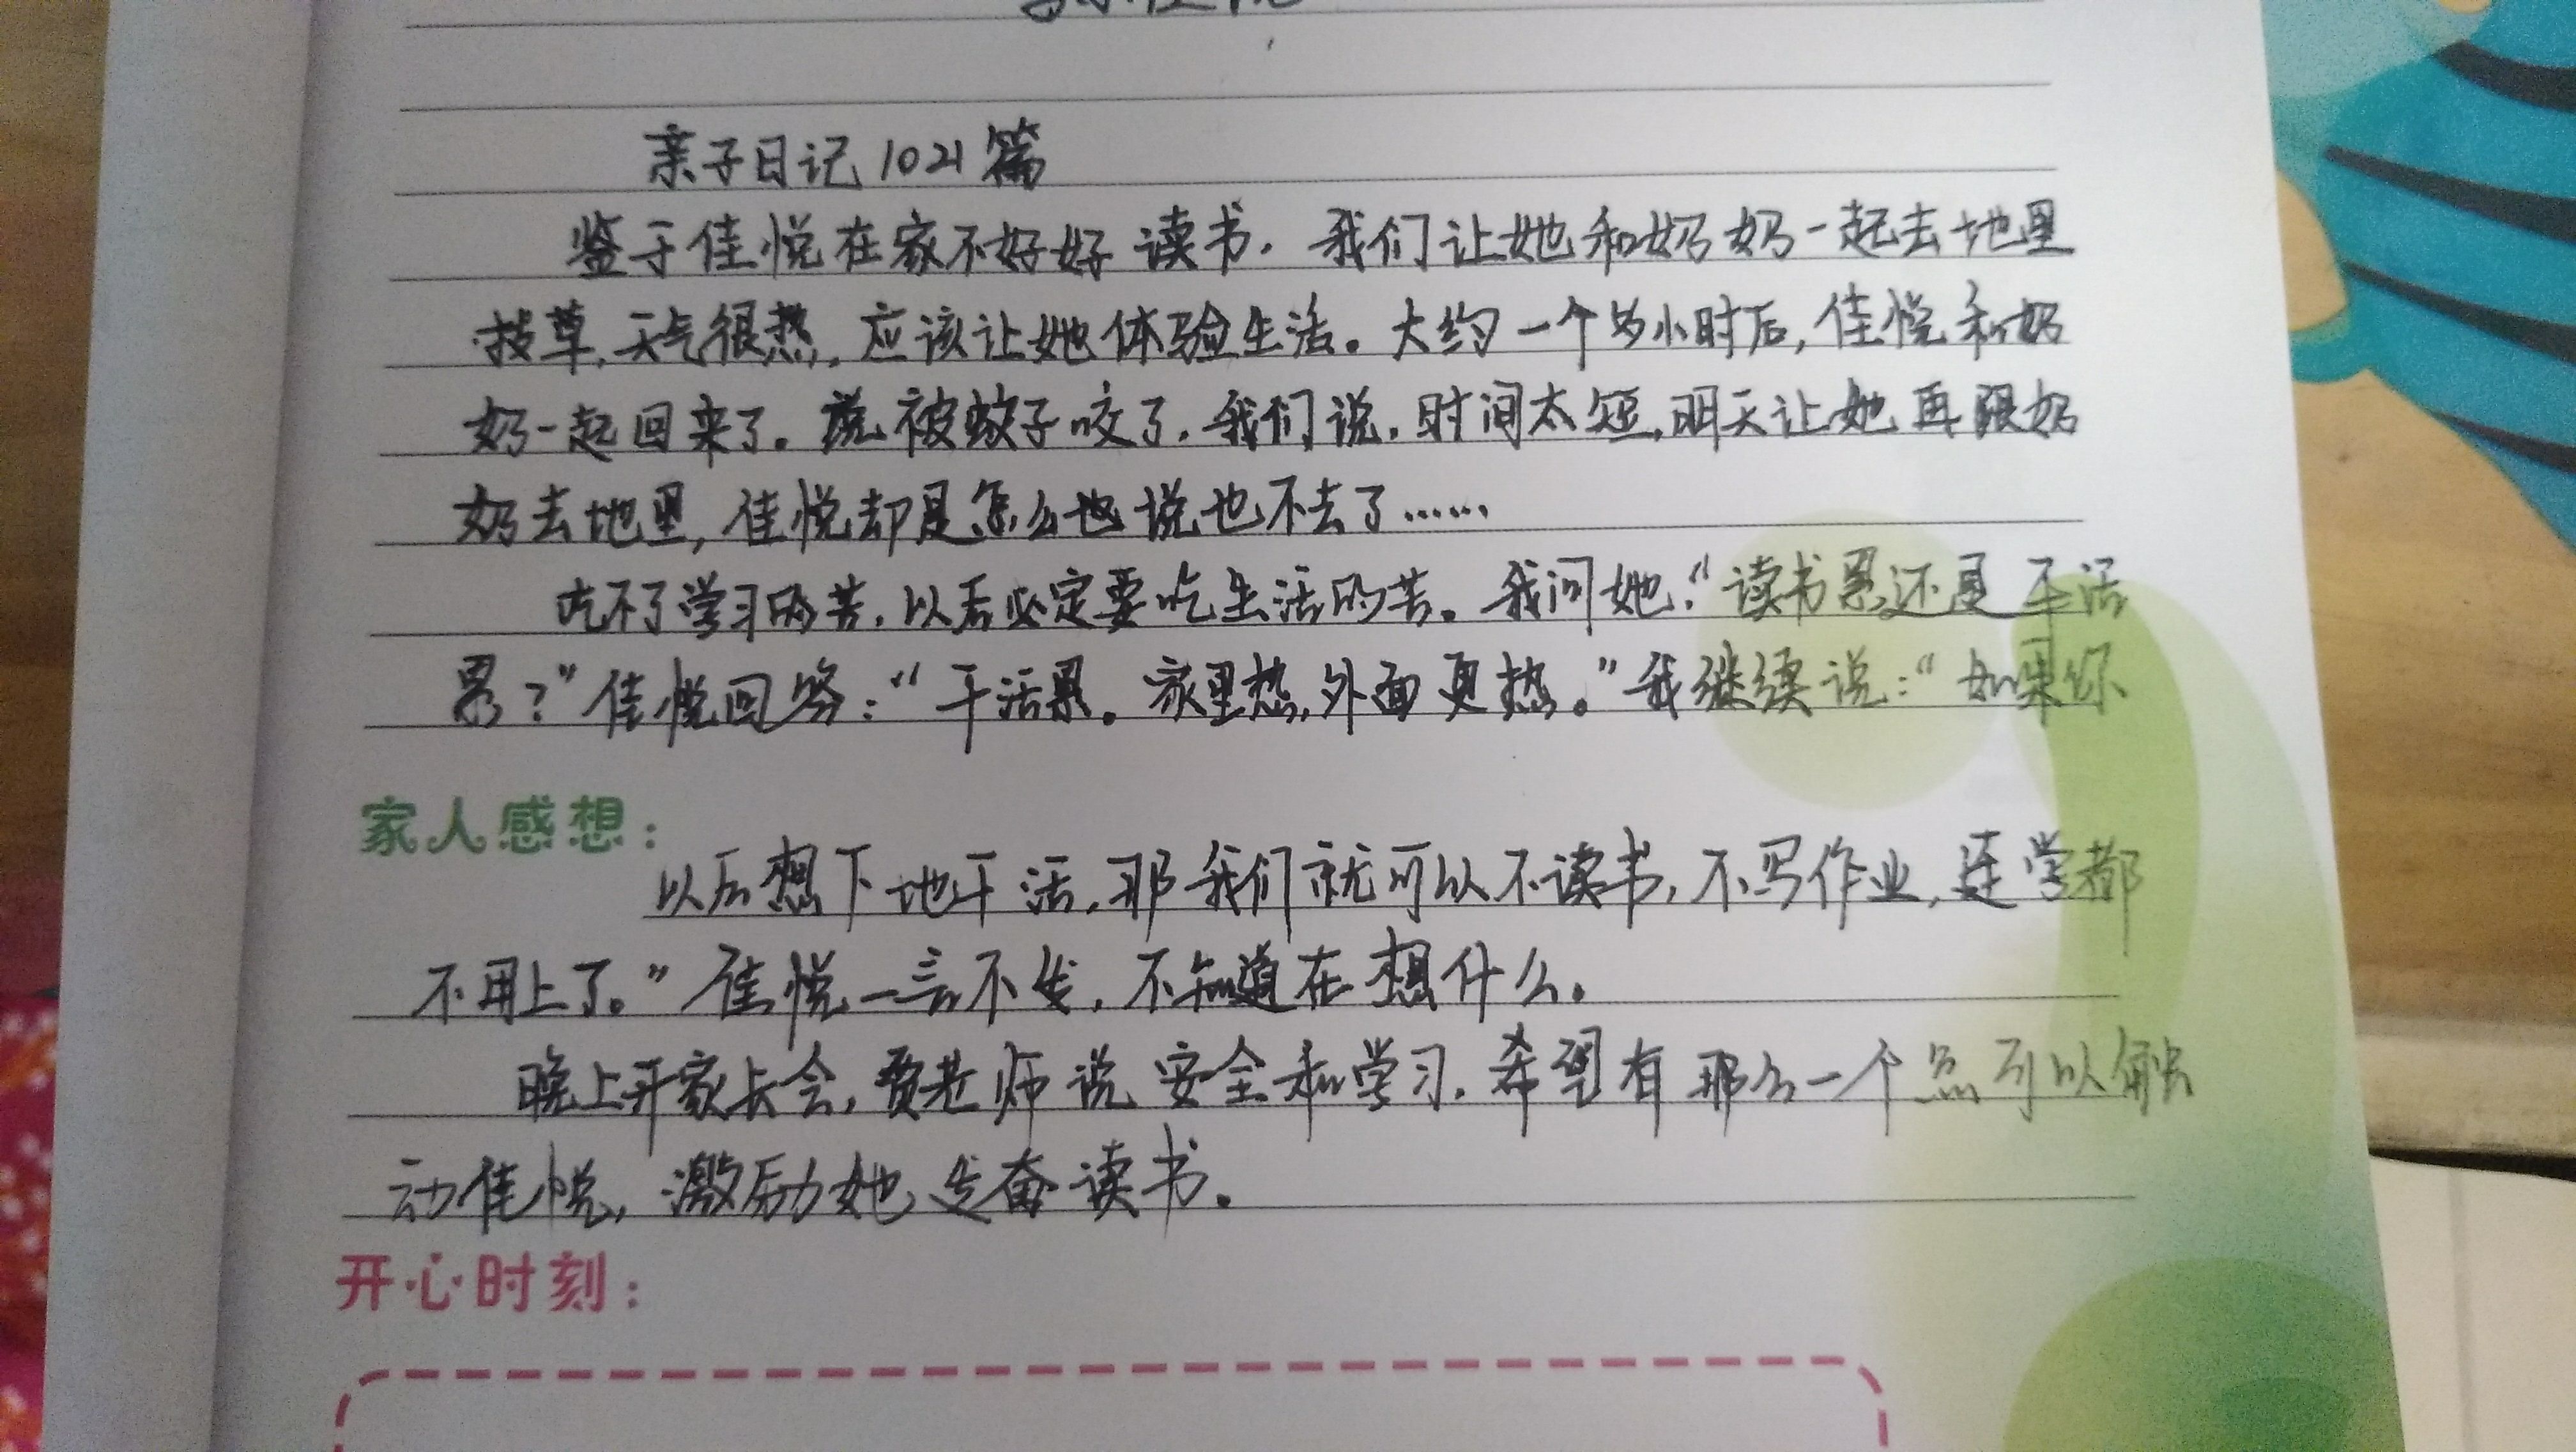 亲子日记1021篇
鉴于佳悦在家不好好读书。我们让她和奶奶一起去地里
拔草,天气很热,应该让她体验生活。大约一个多小时后,佳悦和奶
奶一起回来了。说被蚊子咬了,我们说,时间太短,明天让她再跟奶
奶去地里,佳悦却是怎么也说也不去了……
吃不了学习的苦,以后必定要吃生活的苦。我问她:“读书累还是干活
累?”佳悦回答:“干活累。家里热,外面更热。”我继续说:“如果你
家人感想:
以后想下地干活,那我们就可以不读书,不写作业,连学都
不用上了。”佳悦一言不发,不知道在想什么。
晚上开家长会,贾老师说安全和学习,希望有那么一个点可以触
动佳悦,激励她发奋读书。
开心时刻: